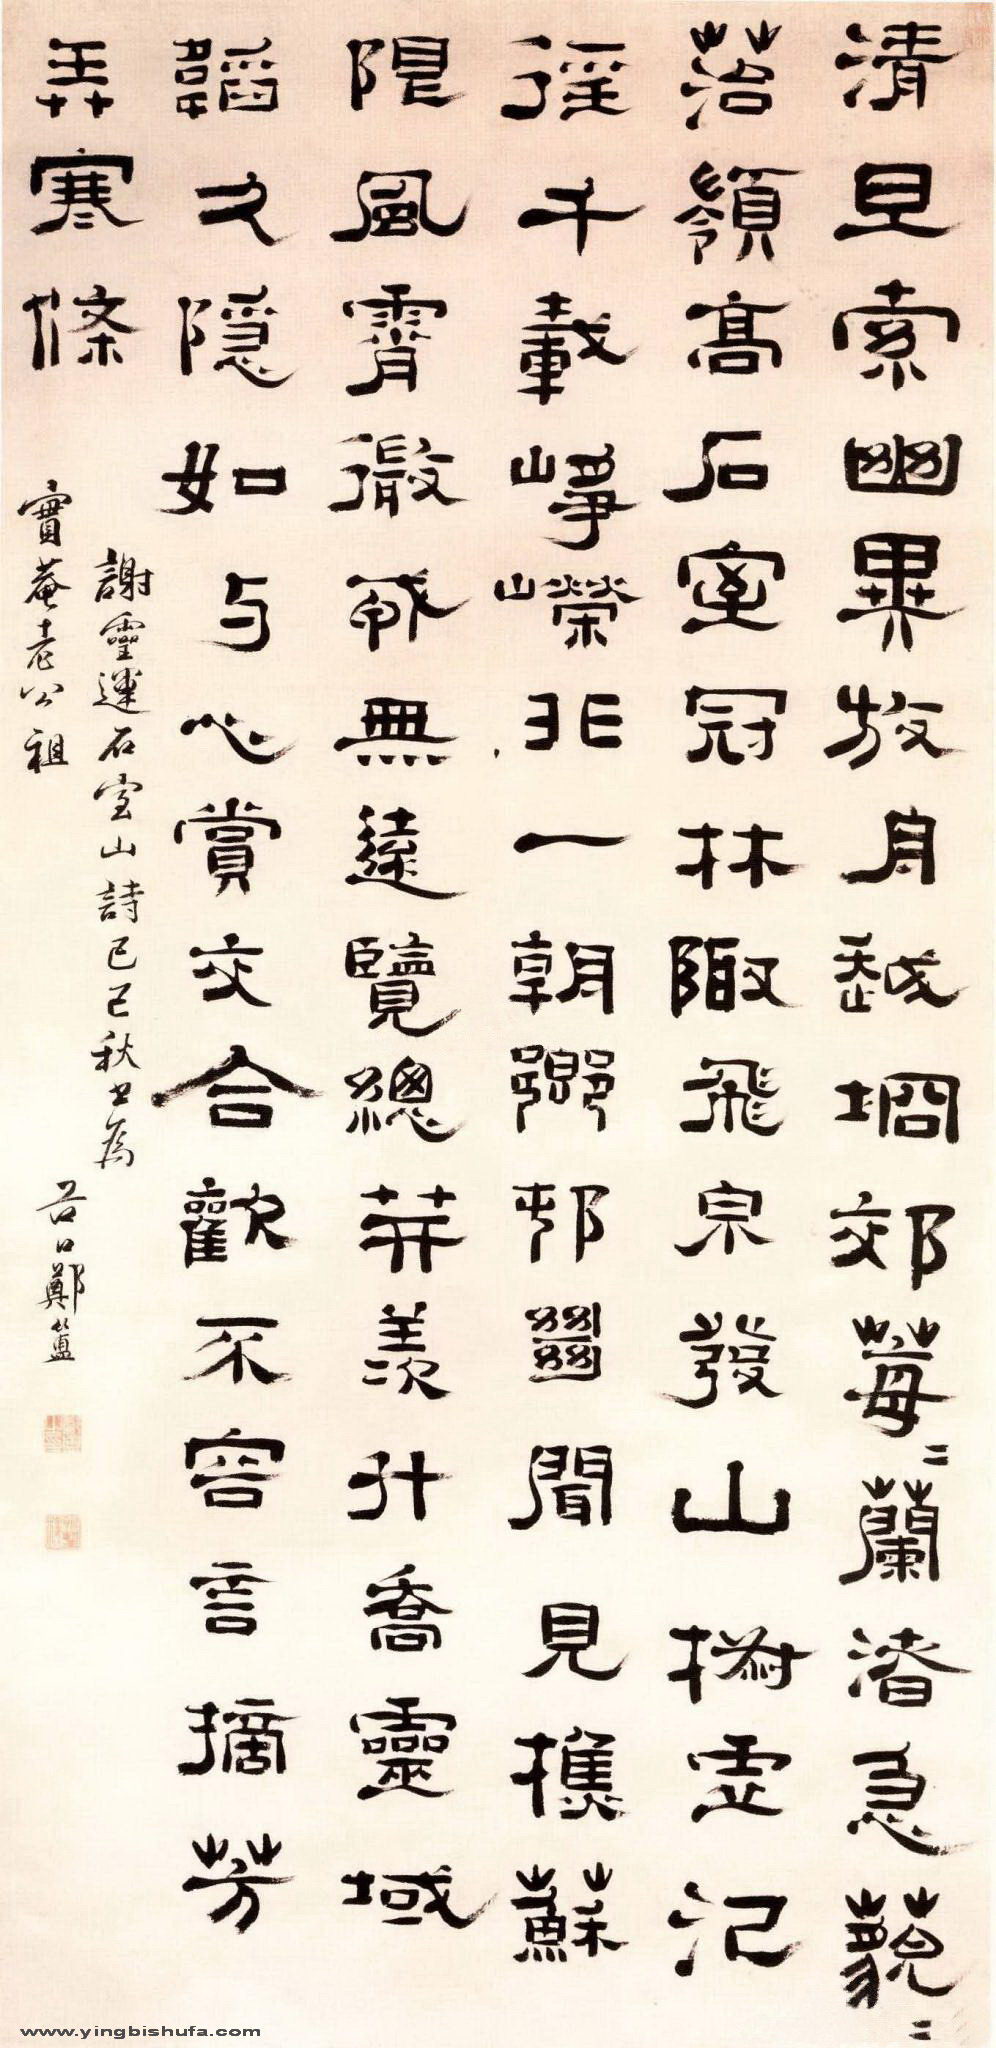 清旦索幽異放舟越坰郊莓二蘭渚急藐二
苔嶺高石室冠林陬飛泉發山椒虛汜
徑千載崢嶸非一朝鄉邨絕聞見樵蘇
限風霄微戎無遠覽總笄羨升喬靈域
韜久隱如与心賞交合歡不容言摘芳
弄寒條
謝靈運石室山詩己巳秋書為
實菴老公祖
谷口鄭簠
www.yingbishufa.com